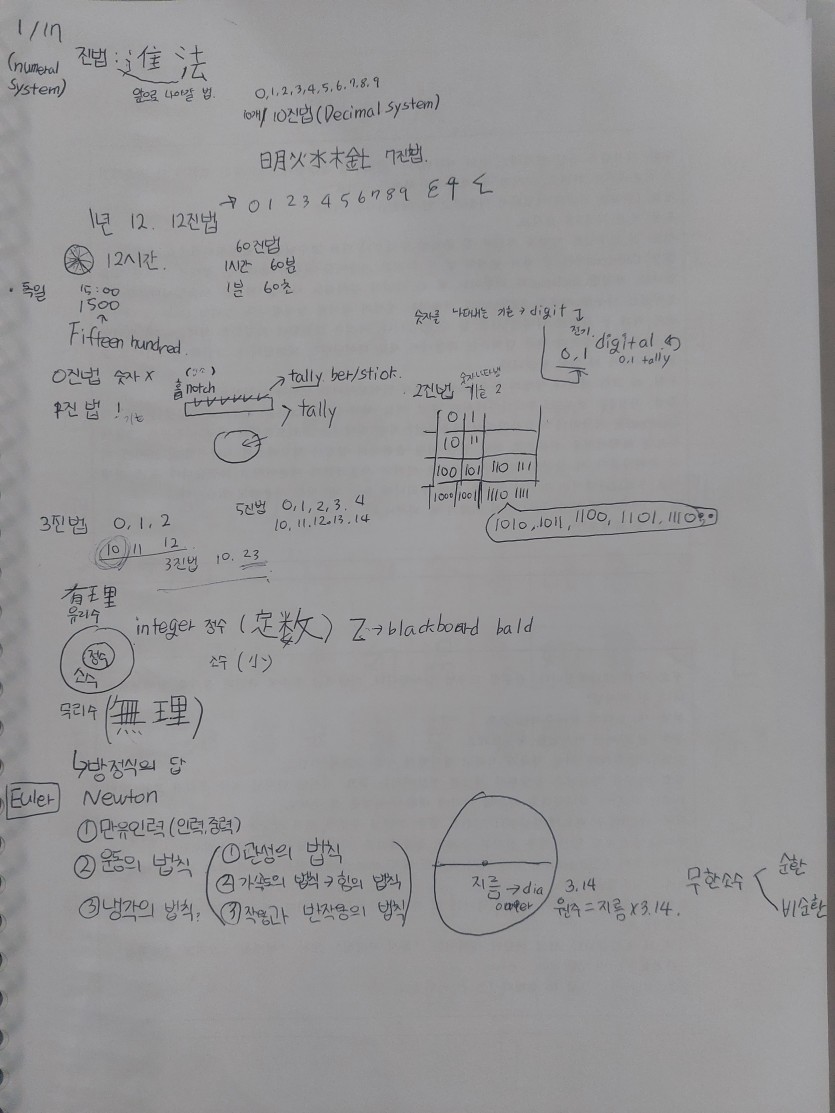 1/17
(numeral system)
진법 : 進 法
앞으로 나아갈 법.
0,1,2,3,4,5,6,7,8,9
10개/10진법(Decimal system)
明火水木金土 7진법.
1년 12. 12진법 → 0 1 2 3 4 5 6 7 8 9
12시간.
60진법
1시간 60분
1분 60초
· 독일 15:00
1500
Fifteen hundred.
숫자를 나타내는 기호 → digit
전기.
0,1 digital
0.1 tally
0진법 숫자 X
notch
→ tally ber/stick.
1진법 !
기호
> tally
2진법 숫자나타낼 기호 2
0 1
10 11
100 101 110 111
1000 1001 1110 1111
1010, 1011, 1100, 1101, 1110
3진법 0, 1, 2
10 11 12
3진법 10. 23
5진법 0, 1, 2, 3. 4
10, 11. 12. 13. 14
有理
유리수
정수
소수
integer 정수 (定数) Z → blackboard bald
소수 (小)
무리수 (無理)
↳방정식의 답
Euler Newton
① 만유인력 (인력, 중력)
② 운동의 법칙
① 관성의 법칙
② 가속도의 법칙 → 힘의 법칙
③ 작용과 반작용의 법칙
③ 냉각의 법칙.
지름 → dia
3.14
원주 = 지름 X 3.14.
무한소수 < 순환
비순환